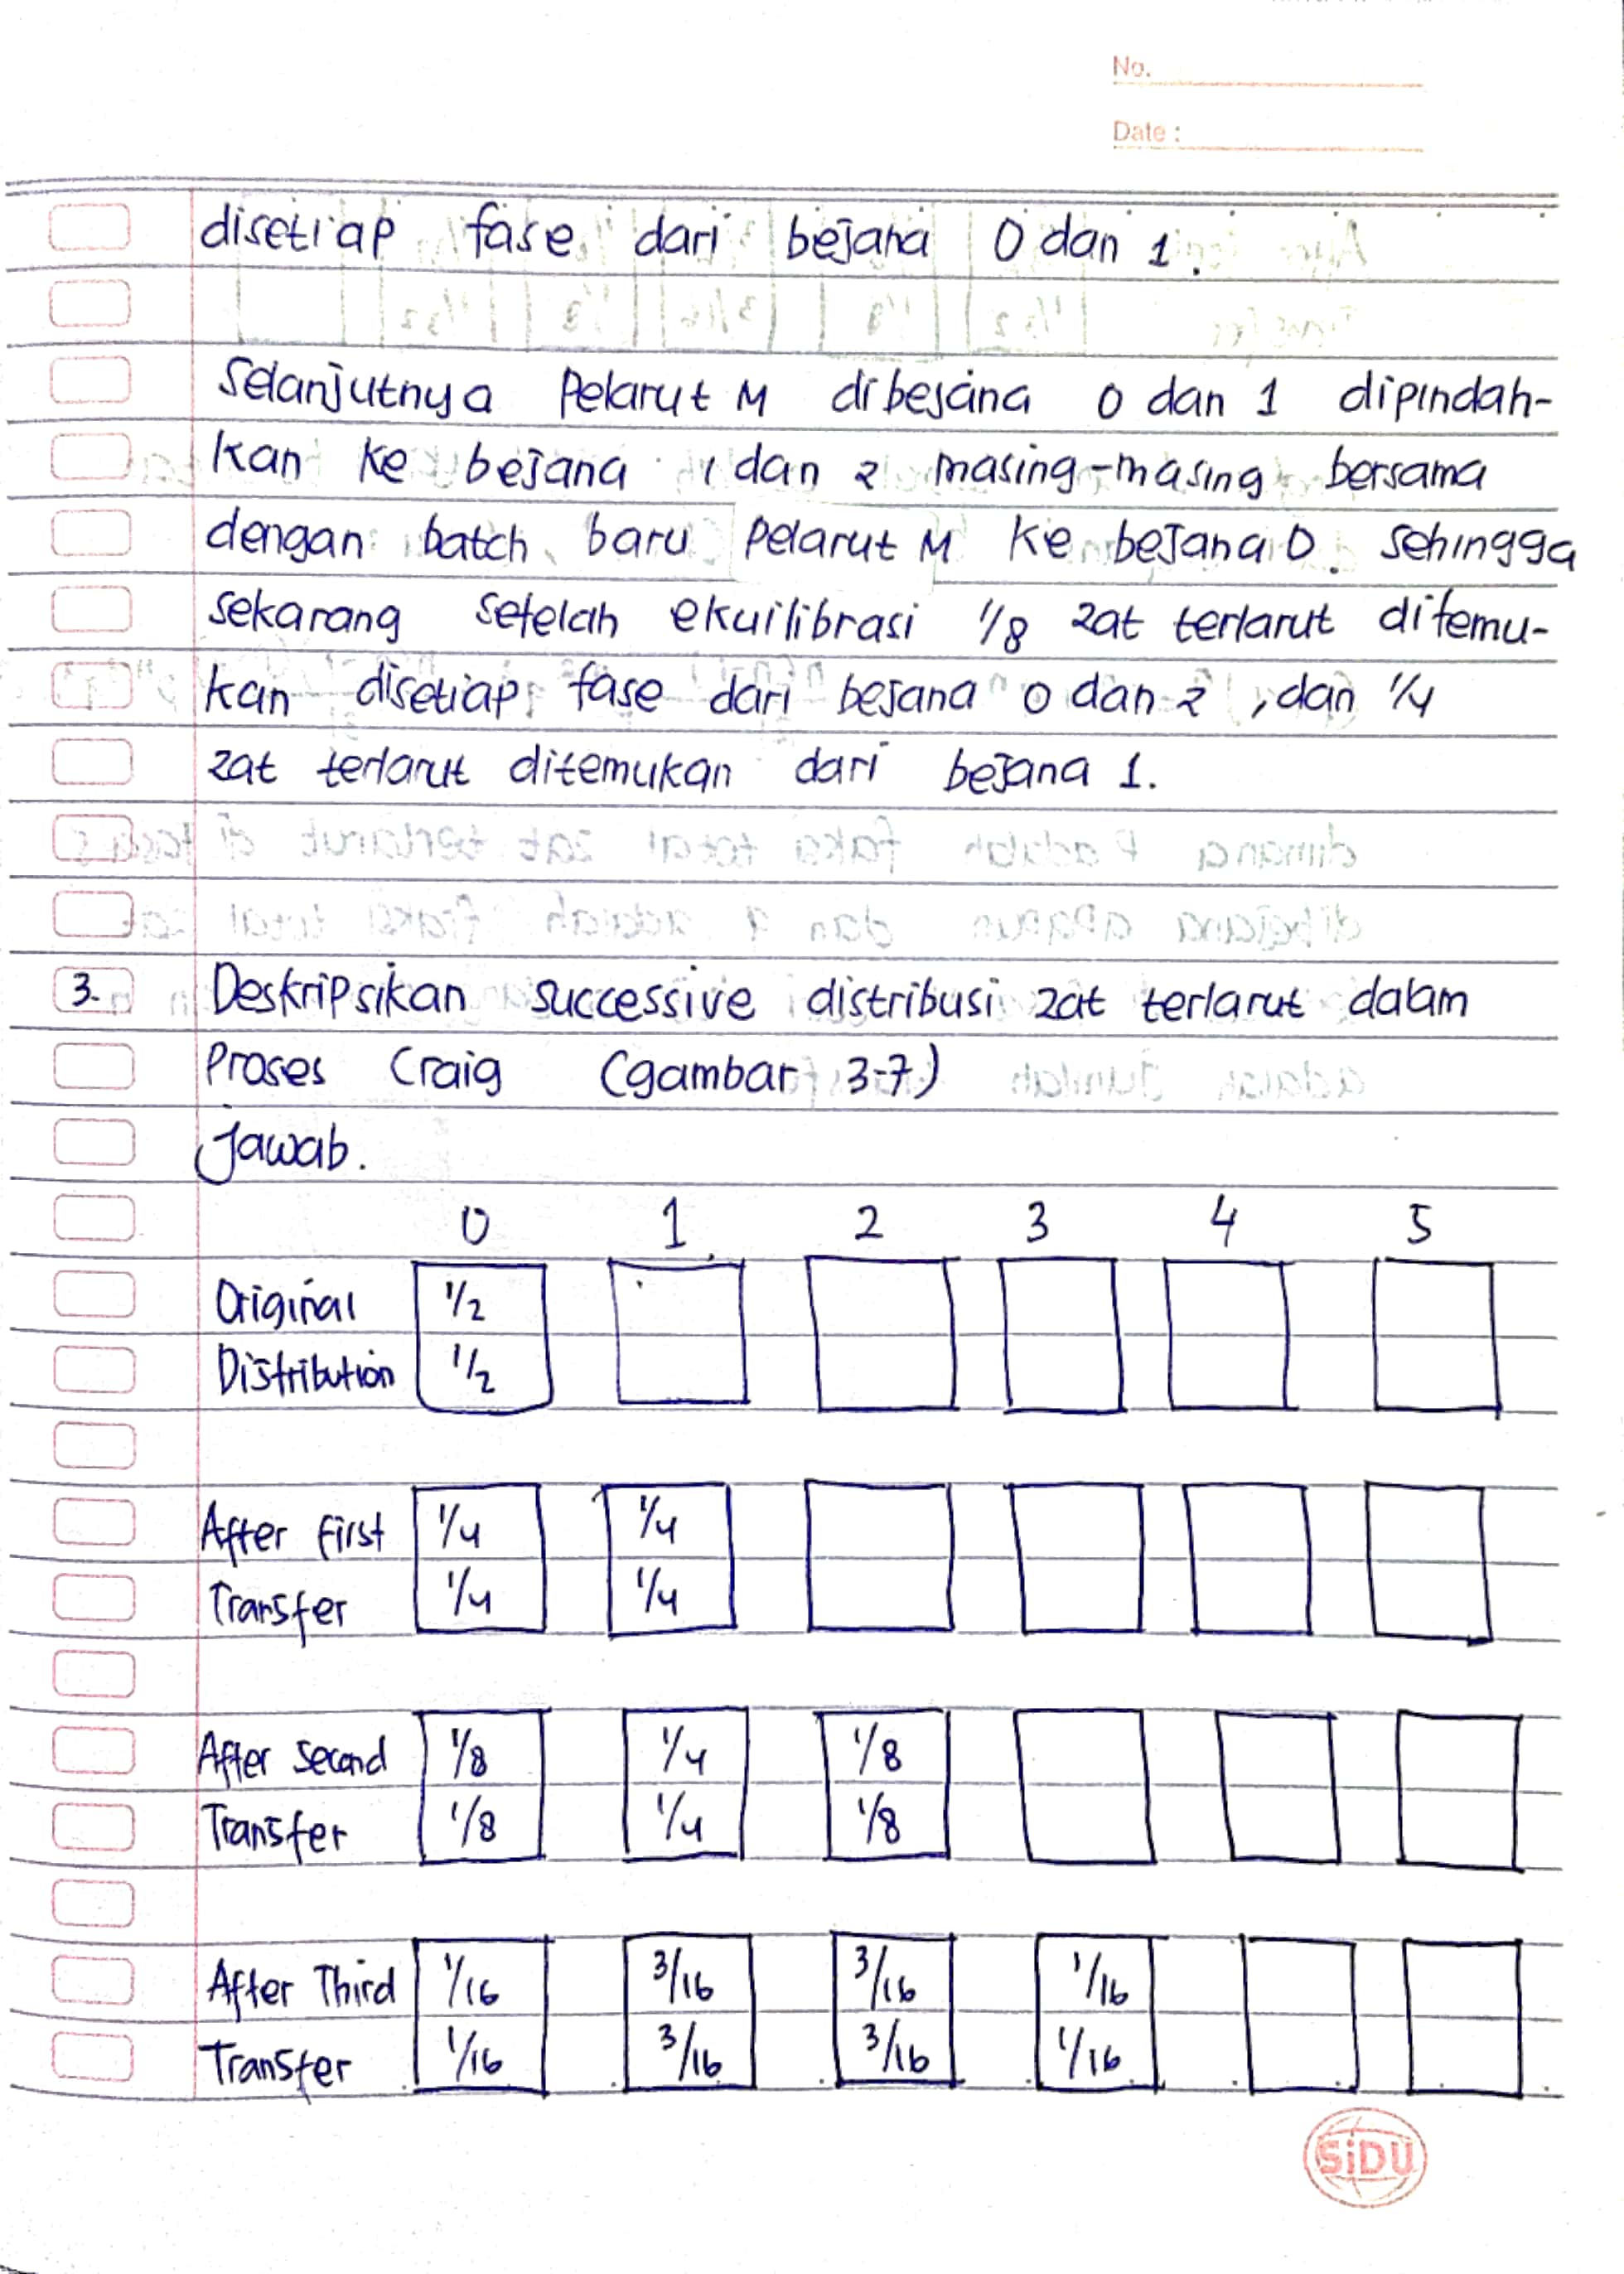 No.
Date :
disetiap fase dari bejana 0 dan 1.
Selanjutnya Pelarut M dibejana 0 dan 1 dipindah-
kan ke bejana 1 dan 2 masing-masing bersama
dengan batch baru Pelarut M ke bejana 0. sehingga
sekarang setelah ekuilibrasi 1/8 zat terlarut ditemu-
kan disetiap fase dari bejana 0 dan 2, dan 1/4
zat terlarut ditemukan dari bejana 1.
3. Deskripsikan successive distribusi zat terlarut dalam
Proses Craig (gambar 3-7)
Jawab.
0 1 2 3 4 5
Original 1/2
Distribution 1/2
After first 1/4 1/4
Transfer 1/4 1/4
After second 1/8 1/4 1/8
Transfer 1/8 1/4 1/8
After Third 1/16 3/16 3/16 1/16
Transfer 1/16 3/16 3/16 1/16
SiDU